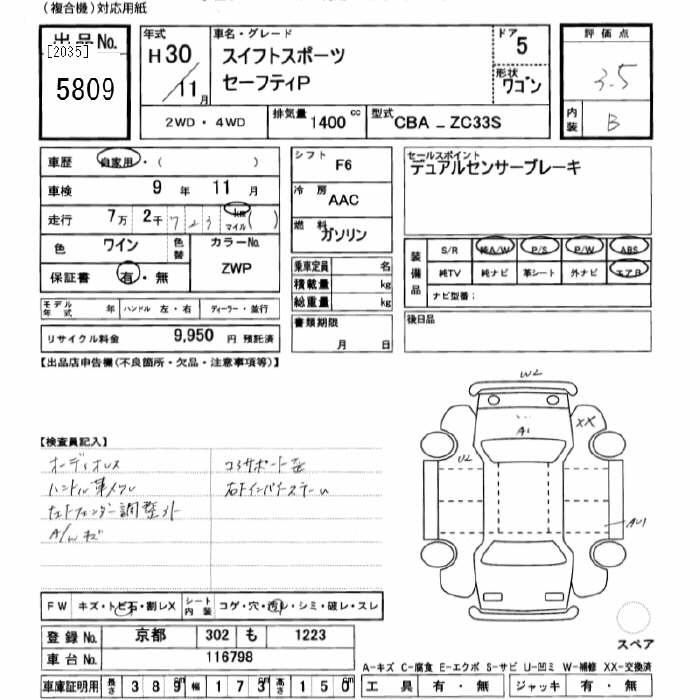 (複合機)対応用紙
出品No. [2035] 5809
年式 H30/11月
車名・グレード スイフトスポーツ セーフティP
ドア 5
形状 ワゴン
評価点 3.5
内装 B
2WD・4WD
排気量 1400cc
型式 CBA-ZC33S
車歴 自家用・( )
車検 9年 11月
走行 7万 2千 7 2 3 km マイル ( )
色 ワイン 色替
カラーNo. ZWP
保証書 有・無
モデル年式 年 ハンドル 左・右 ディーラー・並行
リサイクル料金 9,950 円 預託済
シフト F6
冷房 AAC
燃料 ガソリン
乗車定員 名
積載量 kg
総重量 kg
書類期限 月 日
セールスポイント
デュアルセンサーブレーキ
装備品 S/R 純A/W P/S P/W ABS
純TV 純ナビ 革シート 外ナビ エアB
ナビ型番:
後日品
【出品店申告欄(不良箇所・欠品・注意事項等)】
【検査員記入】
オーディオレス
コアサポート
ハンドル革
左フェンダー調整
A/W キズ
W2
A1
XX
U2
AU1
FW キズ・トビ石・割レX
シート内装 コゲ・穴・透レ・シミ・破レ・スレ
登録No. 京都 302 も 1223
車台No. 116798
車庫証明用 長さ 389cm 幅 173cm 高さ 150cm
スペア
A-キズ C-腐食 E-エクボ S-サビ U-凹ミ W-補修 XX-交換済
工具 有・無 ジャッキ 有・無